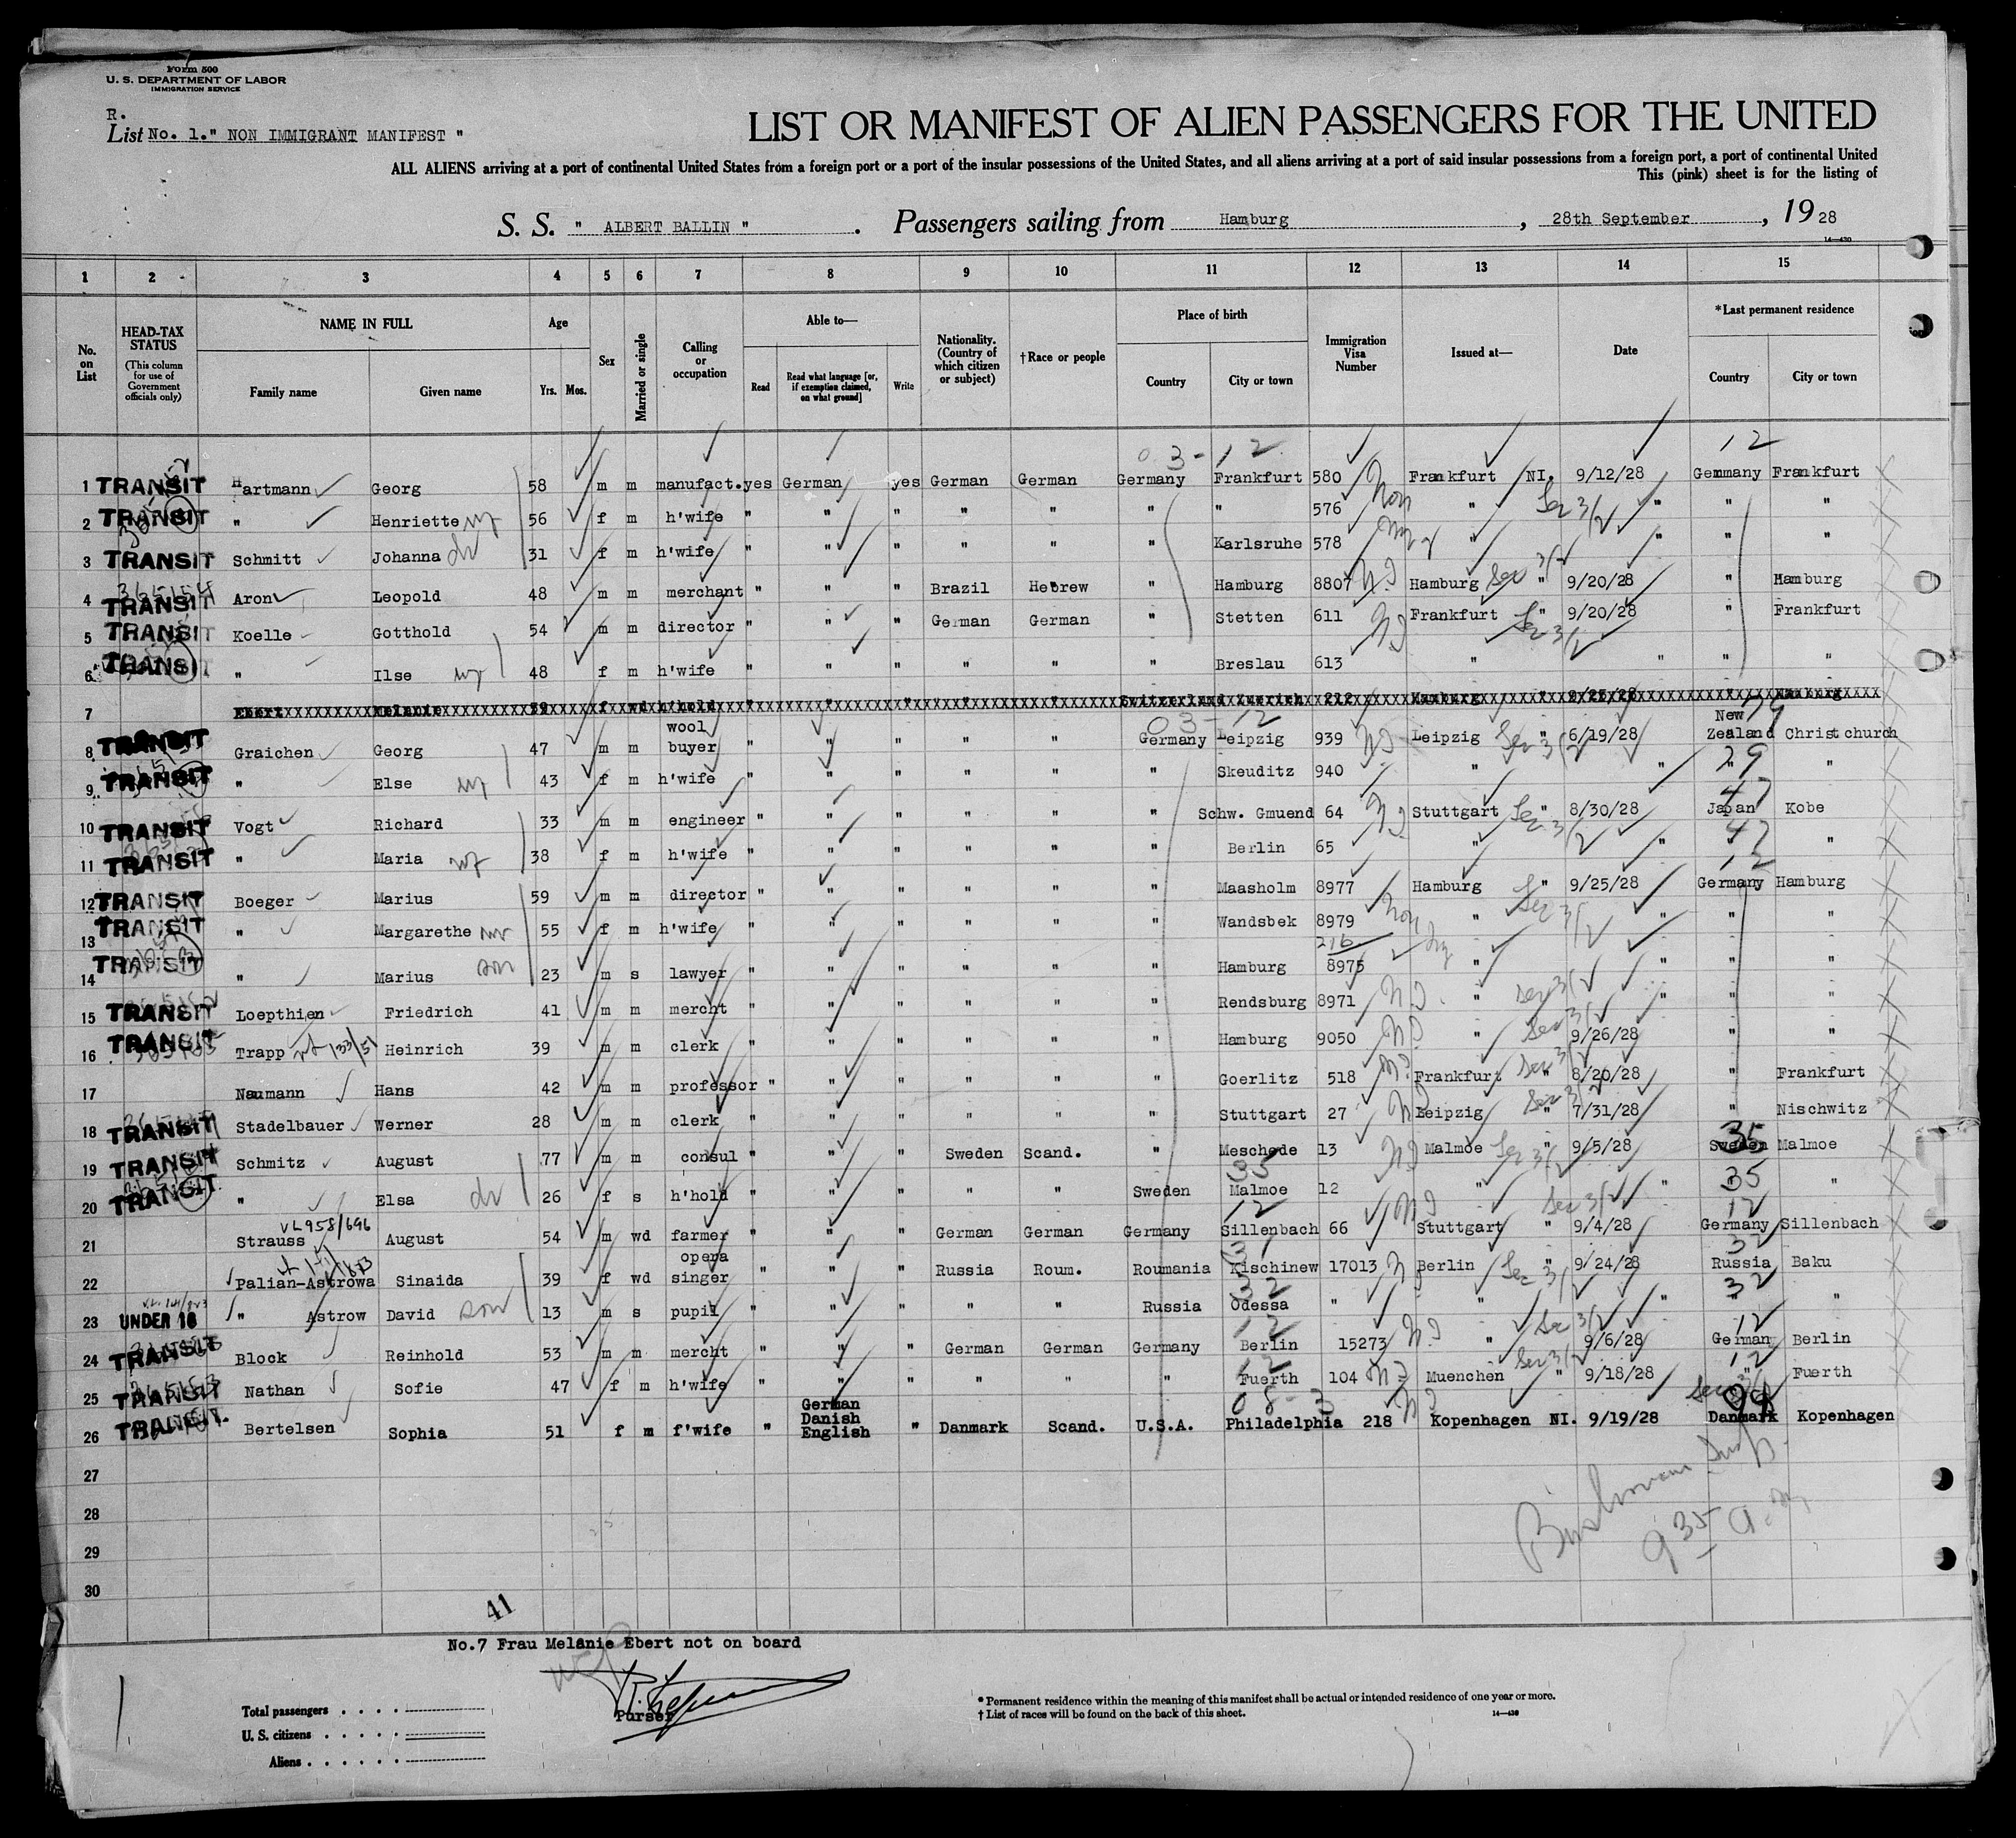 Form 500
U. S. DEPARTMENT OF LABOR
IMMIGRATION SERVICE
R.
List No. 1. " NON IMMIGRANT MANIFEST "
LIST OR MANIFEST OF ALIEN PASSENGERS FOR THE UNITED
ALL ALIENS arriving at a port of continental United States from a foreign port or a port of the insular possessions of the United States, and all aliens arriving at a port of said insular possessions from a foreign port, a port of continental United
This (pink) sheet is for the listing of
S. S. " ALBERT BALLIN ". Passengers sailing from Hamburg, 28th September, 1928
14—430
1 2 3 4 5 6 7 8 9 10 11 12 13 14 15
No. on List
HEAD-TAX STATUS (This column for use of Government officials only)
NAME IN FULL Family name Given name
Age Yrs. Mos.
Sex
Married or single
Calling or occupation
Able to— Read Read what language [or, if exemption claimed, on what ground] Write
Nationality. (Country of which citizen or subject)
†Race or people
Place of birth Country City or town
Immigration Visa Number
Issued at—
Date
*Last permanent residence Country City or town
03-12 12
1 TRANSIT Hartmann Georg 58 m m manufact. yes German yes German German Germany Frankfurt 580 Frankfurt NI. 9/12/28 Germany Frankfurt
2 TRANSIT " Henriette wf 56 f m h'wife " " " " " " " 576 " Sec 3/2 " " "
3 TRANSIT Schmitt Johanna dr 31 f m h'wife " " " " " " Karlsruhe 578 " " " "
4 TRANSIT Aron Leopold 48 m m merchant " " " Brazil Hebrew " Hamburg 8807 NI Hamburg Sec 3/2 " 9/20/28 " Hamburg
5 TRANSIT Koelle Gotthold 54 m m director " " " German German " Stetten 611 NI Frankfurt Sec 3/2 " 9/20/28 " Frankfurt
6 TRANSIT " Ilse wf 48 f m h'wife " " " " " " Breslau 613 " " " "
7 Ebert Melanie 59 f wd h'hold " " " " " Switzerland Zuerich 212 Hamburg " 9/25/28 " Hamburg
03-12 79
8 TRANSIT Graichen Georg 47 m m wool buyer " " " " " Germany Leipzig 939 NI Leipzig Sec 3/2 " 6/19/28 New Zealand Christchurch
9 TRANSIT " Else wf 43 f m h'wife " " " " " " Skeuditz 940 " " " "
10 TRANSIT Vogt Richard 33 m m engineer " " " " " " Schw. Gmuend 64 NI Stuttgart Sec 3/2 " 8/30/28 Japan Kobe
11 TRANSIT " Maria wf 38 f m h'wife " " " " " " Berlin 65 " " " "
12 TRANSIT Boeger Marius 59 m m director " " " " " " Maasholm 8977 Hamburg Sec 3/2 " 9/25/28 Germany Hamburg
13 TRANSIT " Margarethe wf 55 f m h'wife " " " " " " Wandsbek 8979 " " " "
216
14 TRANSIT " Marius son 23 m s lawyer " " " " " " Hamburg 8975 " " " "
15 TRANSIT Loepthien Friedrich 41 m m mercht " " " " " " Rendsburg 8971 NI " Sec 3/2 " " "
16 TRANSIT Trapp Heinrich 39 m m clerk " " " " " " Hamburg 9050 NI " Sec 3/2 9/26/28 " "
17 Naumann Hans 42 m m professor " " " " " " Goerlitz 518 NI Frankfurt Sec 3/2 " 8/20/28 " Frankfurt
18 TRANSIT Stadelbauer Werner 28 m m clerk " " " " " " Stuttgart 27 NI Leipzig Sec 3/2 " 7/31/28 " Nischwitz
19 TRANSIT Schmitz August 77 m m consul " " " Sweden Scand. " Meschede 13 NI Malmoe Sec 3/2 " 9/5/28 Sweden 35 Malmoe
20 TRANSIT " Elsa dr 26 f s h'hold " " " " " Sweden Malmoe 35 12 " " 35 "
VL958/696
21 Strauss August 54 m wd farmer " " " German German Germany Sillenbach 12 66 NI Stuttgart Sec 3/2 " 9/4/28 Germany 12 Sillenbach
22 Palian-Astrowa Sinaida 39 f wd opera singer " " " Russia Roum. Roumania Kischinew 17013 NI Berlin Sec 3/2 " 9/24/28 Russia Baku
23 UNDER 16 " Astrow David son 13 m s pupil " " " " " Russia Odessa 32 " " " 32 " "
24 TRANSIT Block Reinhold 53 m m mercht " " " German German Germany Berlin 12 15273 NI " Sec 3/2 9/6/28 German 12 Berlin
25 TRANSIT Nathan Sofie 47 f m h'wife " " " " " " Fuerth 12 104 NI Muenchen Sec 3/2 " 9/18/28 " 12 Fuerth
26 TRANSIT Bertelsen Sophia 51 f m f'wife " German Danish English " Danmark Scand. U.S.A. Philadelphia 218 NI Kopenhagen NI. 9/19/28 Danmark Kopenhagen
27
28
29
30
9 35 a.m
41
No.7 Frau Melanie Ebert not on board
Purser
Total passengers
U. S. citizens
Aliens
* Permanent residence within the meaning of this manifest shall be actual or intended residence of one year or more.
† List of races will be found on the back of this sheet.
14—430